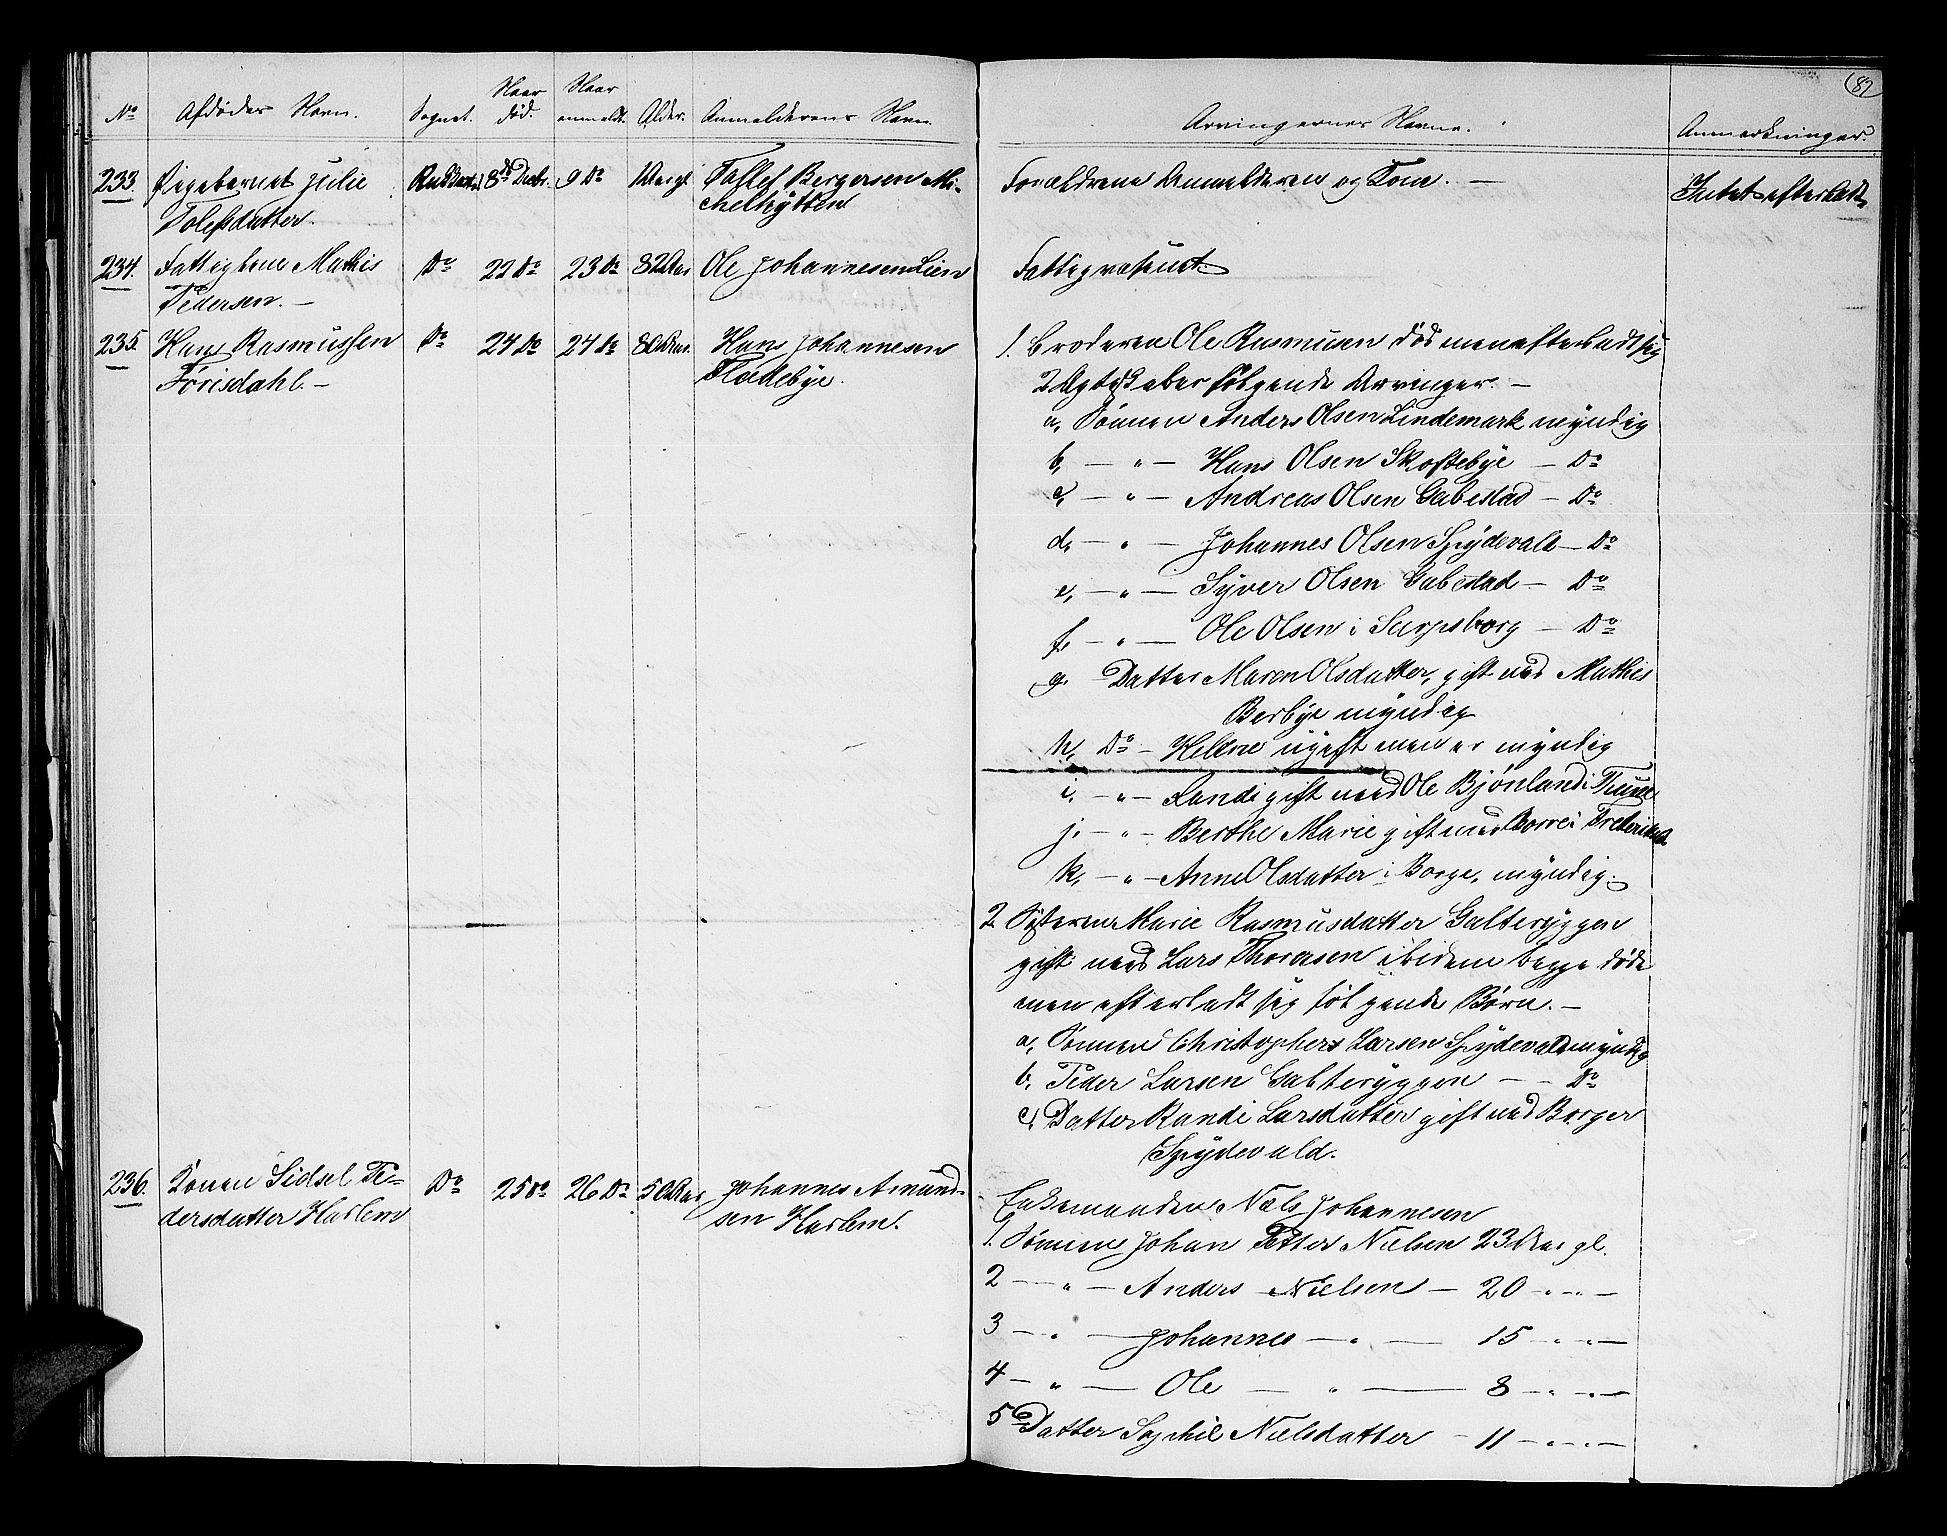 82
No Afdødes Navn. Sognet. Naar død. Naar anmeldt. Alder. Anmelderens Navn. Arvingernes Navne. Anmærkninger.
233. Pigebarnet Julie 8de Decbr. 9 Do Tollef Bergersen Mi- Forældrene Anmelderen og Kone. — Intet efterladt
Tolefsdatter. chelhytten
234. Fattiglem Mathis Do 22 Do 23 Do 82 Aar Ole Johannesen Lien Fattigvæsenet
Pedersen. —
235. Hans Rasmussen Do 24 Do 24 Do 80 Aar. Hans Johannesen 1. Broderen Ole Rasmusen død men efterladt sig
Torisdahl. — Fladebye. 2 Ægteskaber følgende Arvinger. —
a, Sønnen Anders Olsen Lindemark myndig
b, — " — Hans Olsen Skoftebye — Do
c, — " — Andreas Olsen Gabestad — Do
d, — " — Johannes Olsen Spydevold — Do
e, — " — Syver Olsen Gabestad — Do
f, — " — Ole Olsen i Sarpsborg — Do
g. Datter Maren Olsdatter, gift med Mathis
Berbye myndig
h, Do — Helene ugift men er myndig
i, — " — Randi gift med Ole Bjørnland i Tune
j. — " — Berthe Marie gift med Borre i
k, — " — Anne Olsdatter i Borge, myndig.
2 Søsteren Marie Rasmusdatter Galterøggen
gift med Lars Thoresen ibidem begge døde
men efterladt sig følgende Børn. —
a, Sønnen Christopher Larsen Spydevold myndig
b, Peder Larsen Galterøggen — — Do
c, Datter Randi Larsdatter gift med Borger
Spydevold.
236. Konen Sidsel Pe- Do 25 Do 26 Do 50 Aar Johannes Amund- Enkemanden Niels Johannesen
dersdatter Haslem sen Haslem. 1. Sønnen Johan Petter Nielsen 23 Aar gl.
2 — " — Anders Nielsen — 20 — " — " —
3 — " — Johannes — " — 15 — " — " —
4 — " — Ole — " — 8 — " — " —
5 Datter Sophie Nielsdatter — 11 — " — " —